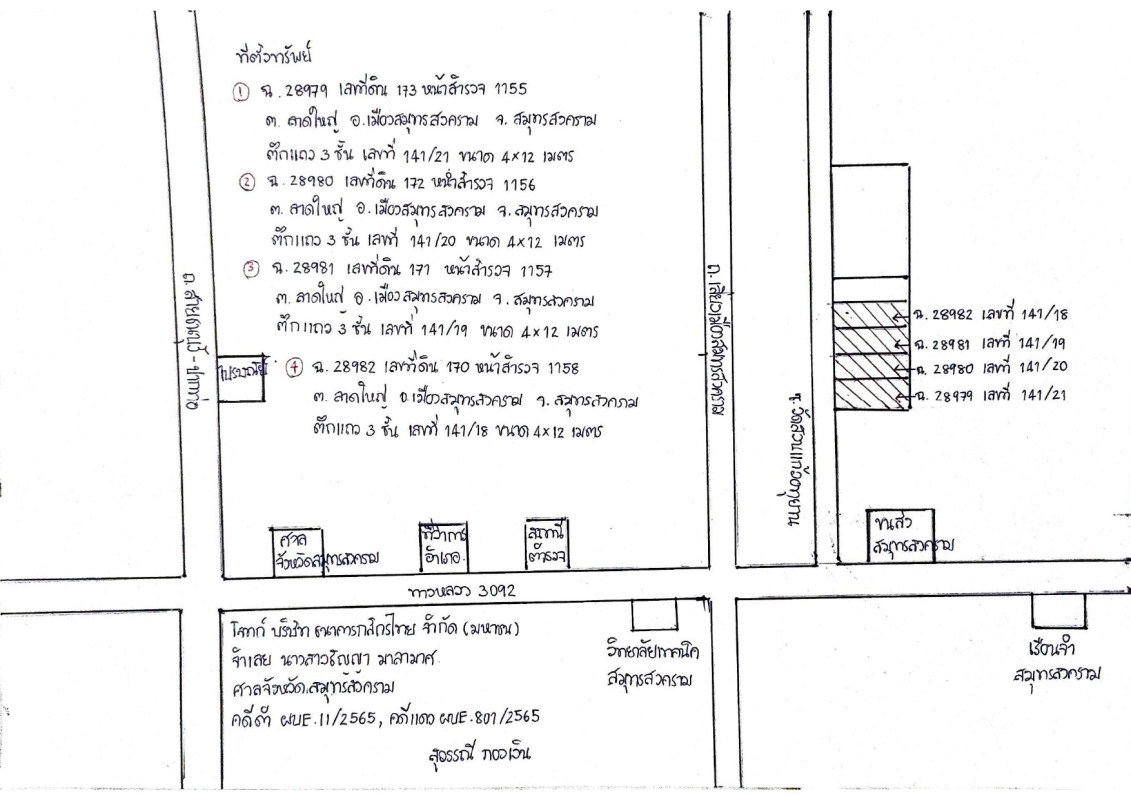 ที่ตั้งทรัพย์
① ฉ. 28979 เลขที่ดิน 173 หน้าสำรวจ 1155
ต. ลาดใหญ่ อ.เมืองสมุทรสงคราม จ. สมุทรสงคราม
ตึกแถว 3 ชั้น เลขที่ 141/21 ขนาด 4×12 เมตร
② ฉ. 28980 เลขที่ดิน 172 หน้าสำรวจ 1156
ต. ลาดใหญ่ อ.เมืองสมุทรสงคราม จ. สมุทรสงคราม
ตึกแถว 3 ชั้น เลขที่ 141/20 ขนาด 4×12 เมตร
③ ฉ. 28981 เลขที่ดิน 171 หน้าสำรวจ 1157
ต. ลาดใหญ่ อ.เมืองสมุทรสงคราม จ. สมุทรสงคราม
ตึกแถว 3 ชั้น เลขที่ 141/19 ขนาด 4×12 เมตร
④ ฉ. 28982 เลขที่ดิน 170 หน้าสำรวจ 1158
ต. ลาดใหญ่ อ.เมืองสมุทรสงคราม จ. สมุทรสงคราม
ตึกแถว 3 ชั้น เลขที่ 141/18 ขนาด 4×12 เมตร
ไปรษณีย์
ฉ. 28982 เลขที่ 141/18
ฉ. 28981 เลขที่ 141/19
ฉ. 28980 เลขที่ 141/20
ฉ. 28979 เลขที่ 141/21
ศาล
จังหวัดสมุทรสงคราม
ที่ว่าการ
อำเภอ
สถานี
ตำรวจ
ขนส่ง
สมุทรสงคราม
ทางหลวง 3092
โจทก์ บริษัท ธนาคารกสิกรไทย จำกัด (มหาชน)
จำเลย นางสาวธัญญา มาลามาศ
ศาลจังหวัดสมุทรสงคราม
คดีดำ ผบE.11/2565, คดีแดง ผบE.801/2565
สุวรรณี ทองเงิน
วิทยาลัยเทคนิค
สมุทรสงคราม
เรือนจำ
สมุทรสงคราม